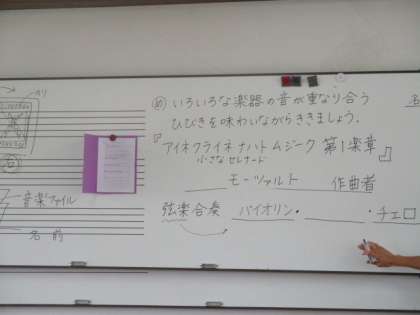 のり
音楽ファイル
名前
め いろいろな楽器の音が重なり合う
ひびきを味わいながらききましょう。
『アイネクライネナハトムジーク 第1楽章』
小さな セレナード
モーツァルト 作曲者
弦楽合奏 バイオリン・ ・チェロ
名